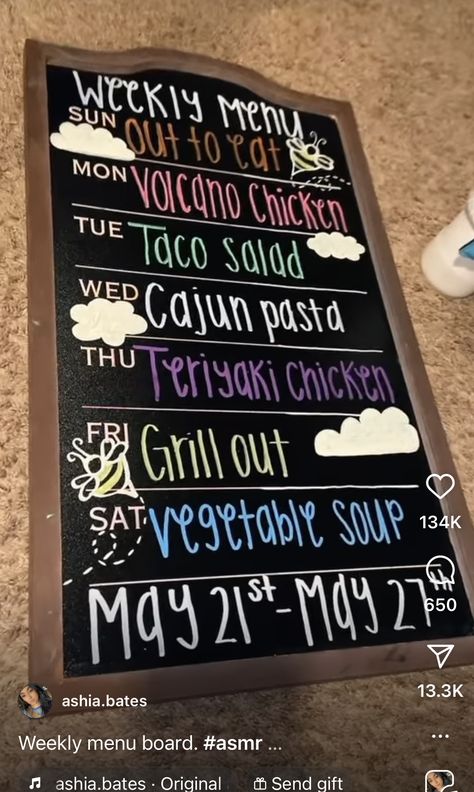 Weekly Menu
SUN out to eat
MON Volcano Chicken
TUE Taco Salad
WED Cajun pasta
THU Teriyaki Chicken
FRI Grill out
SAT vegetable soup
May 21st - May 27th
134K
650
13.3K
ashia.bates
Weekly menu board. #asmr ...
ashia.bates · Original
Send gift